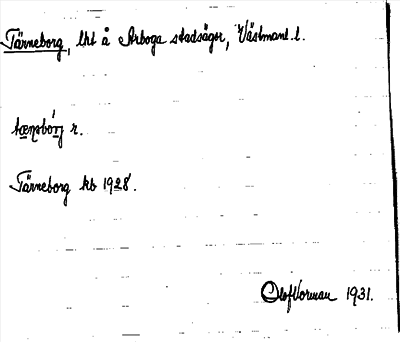 Tärneborg, lht å Arboga stadsägor, Västmanl. l.
tæṇsbórj r.
Tärneborg kb 1928.
Olof Vorman 1931.